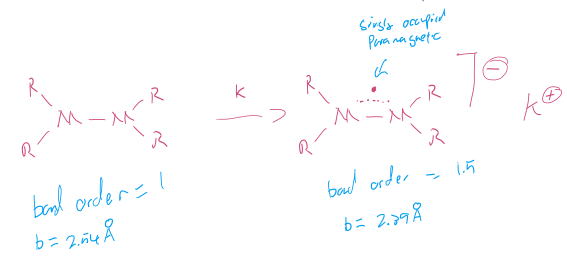 singly occupied
Paramagnetic
R
R
M — M
R
R
K
R
R
M — M
R
R
⊖
K⊕
bond order = 1
b = 2.54 Å
bond order = 1.5
b = 2.29 Å